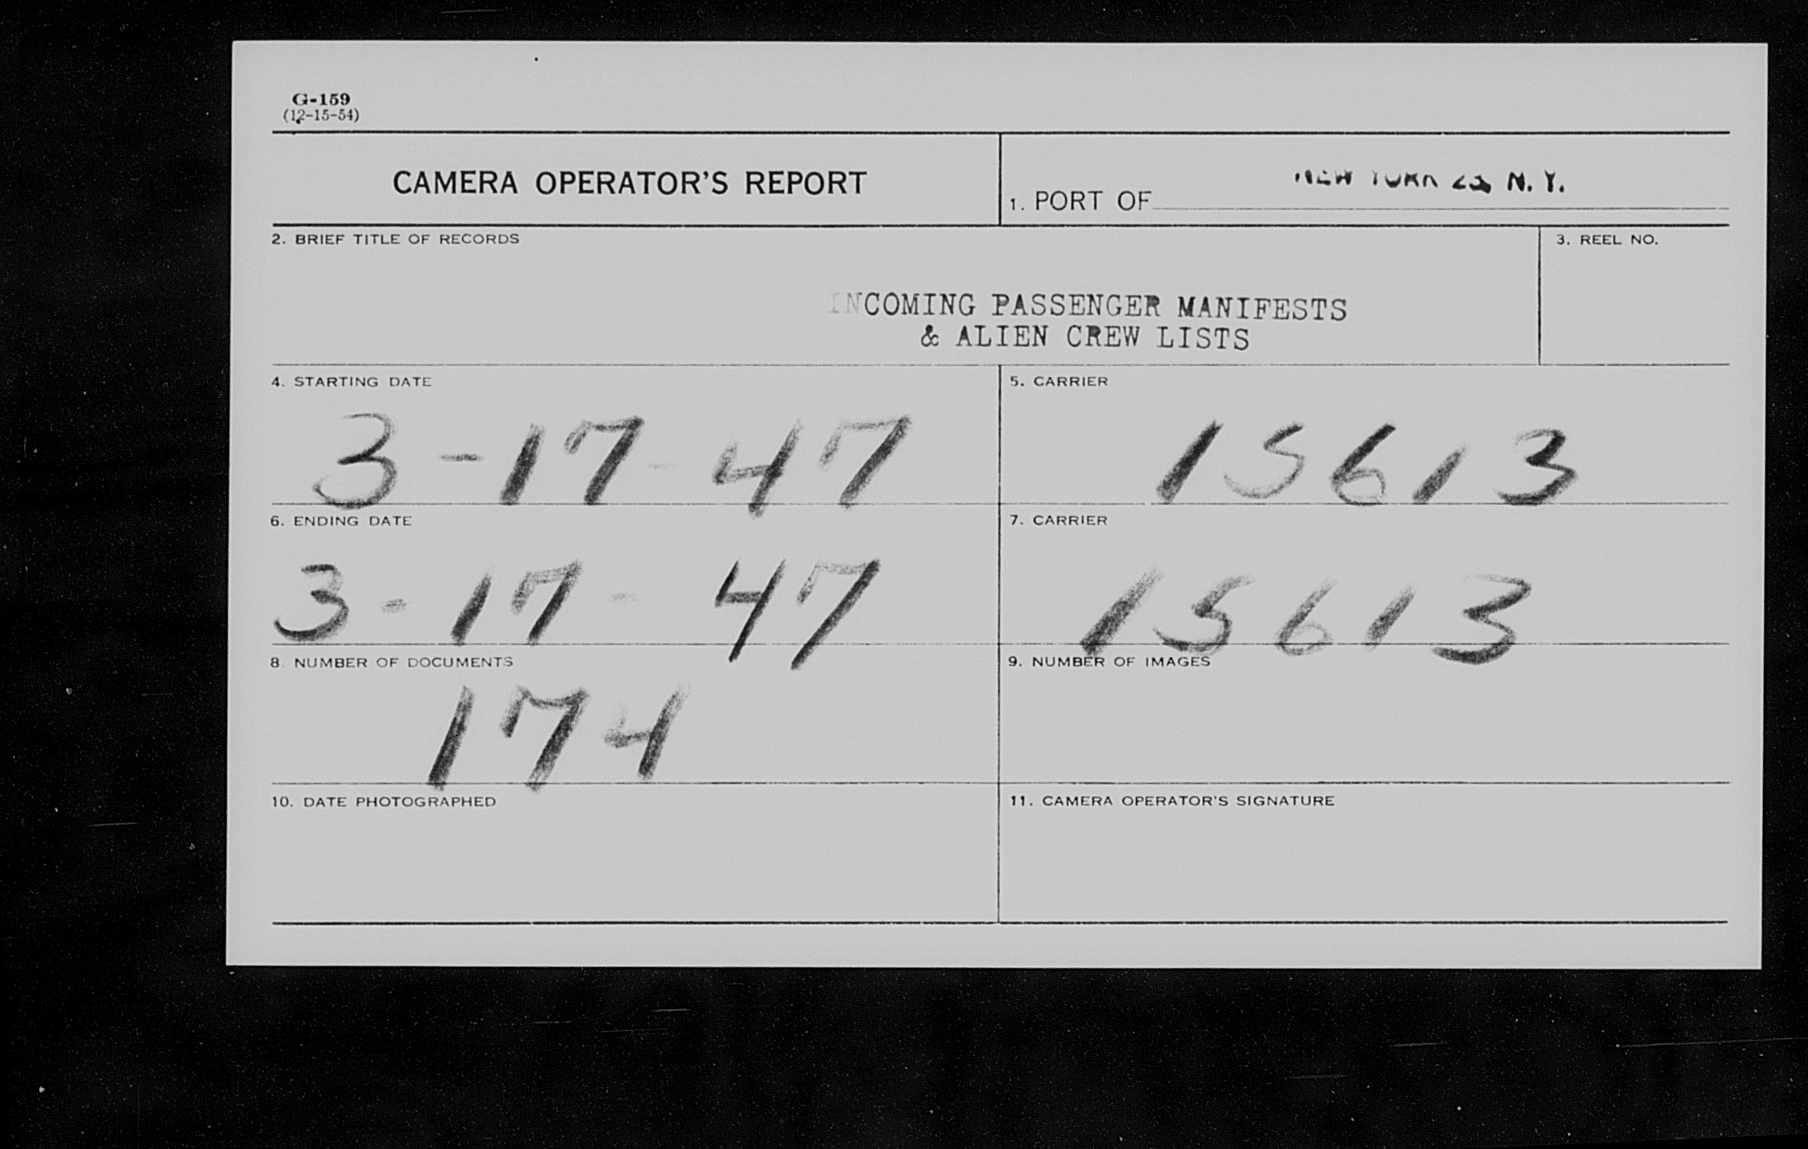 G-159
(12-15-54)
CAMERA OPERATOR'S REPORT
1. PORT OF NEW YORK 23, N. Y.
2. BRIEF TITLE OF RECORDS
3. REEL NO.
INCOMING PASSENGER MANIFESTS
& ALIEN CREW LISTS
4. STARTING DATE
5. CARRIER
3-17-47
15613
6. ENDING DATE
7. CARRIER
3-17-47
15613
8. NUMBER OF DOCUMENTS
9. NUMBER OF IMAGES
174
10. DATE PHOTOGRAPHED
11. CAMERA OPERATOR'S SIGNATURE